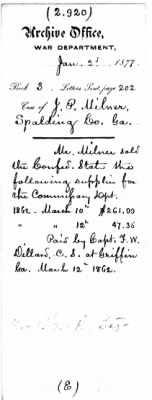 (2.920)
Archive Office,
WAR DEPARTMENT,
Jan. 2d 1877.
Book 3 Letters Sent, page 202
Case of J. P. Milner,
Spalding Co. Ga.
Mr. Milner sold
the Confed. States the
following supplies for
the Commissary Dept.
1862. March 10th $261.99
" " 12th 47.36
Paid by Capt. F. W.
Dillard, C. S. at Griffin
Ga. March 12th 1862.
(E)